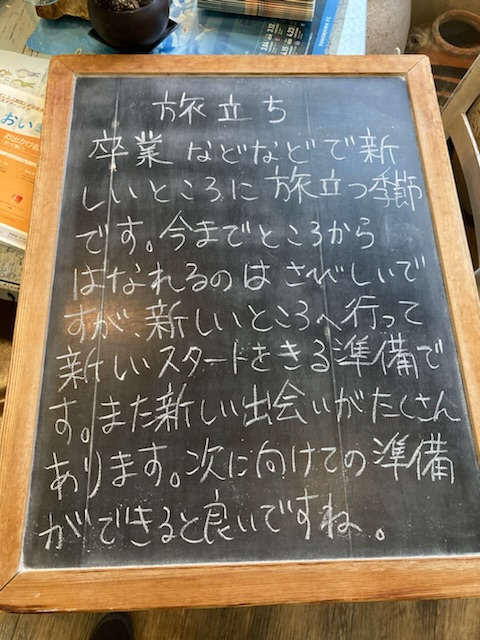 旅立ち
卒業などなどで新
しいところに旅立つ季節
です。今までところから
はなれるのはさびしいで
すが、新しいところへ行って
新しいスタートをきる準備で
す。また新しい出会いがたくさん
あります。次に向けての準備
ができると良いですね。
おい